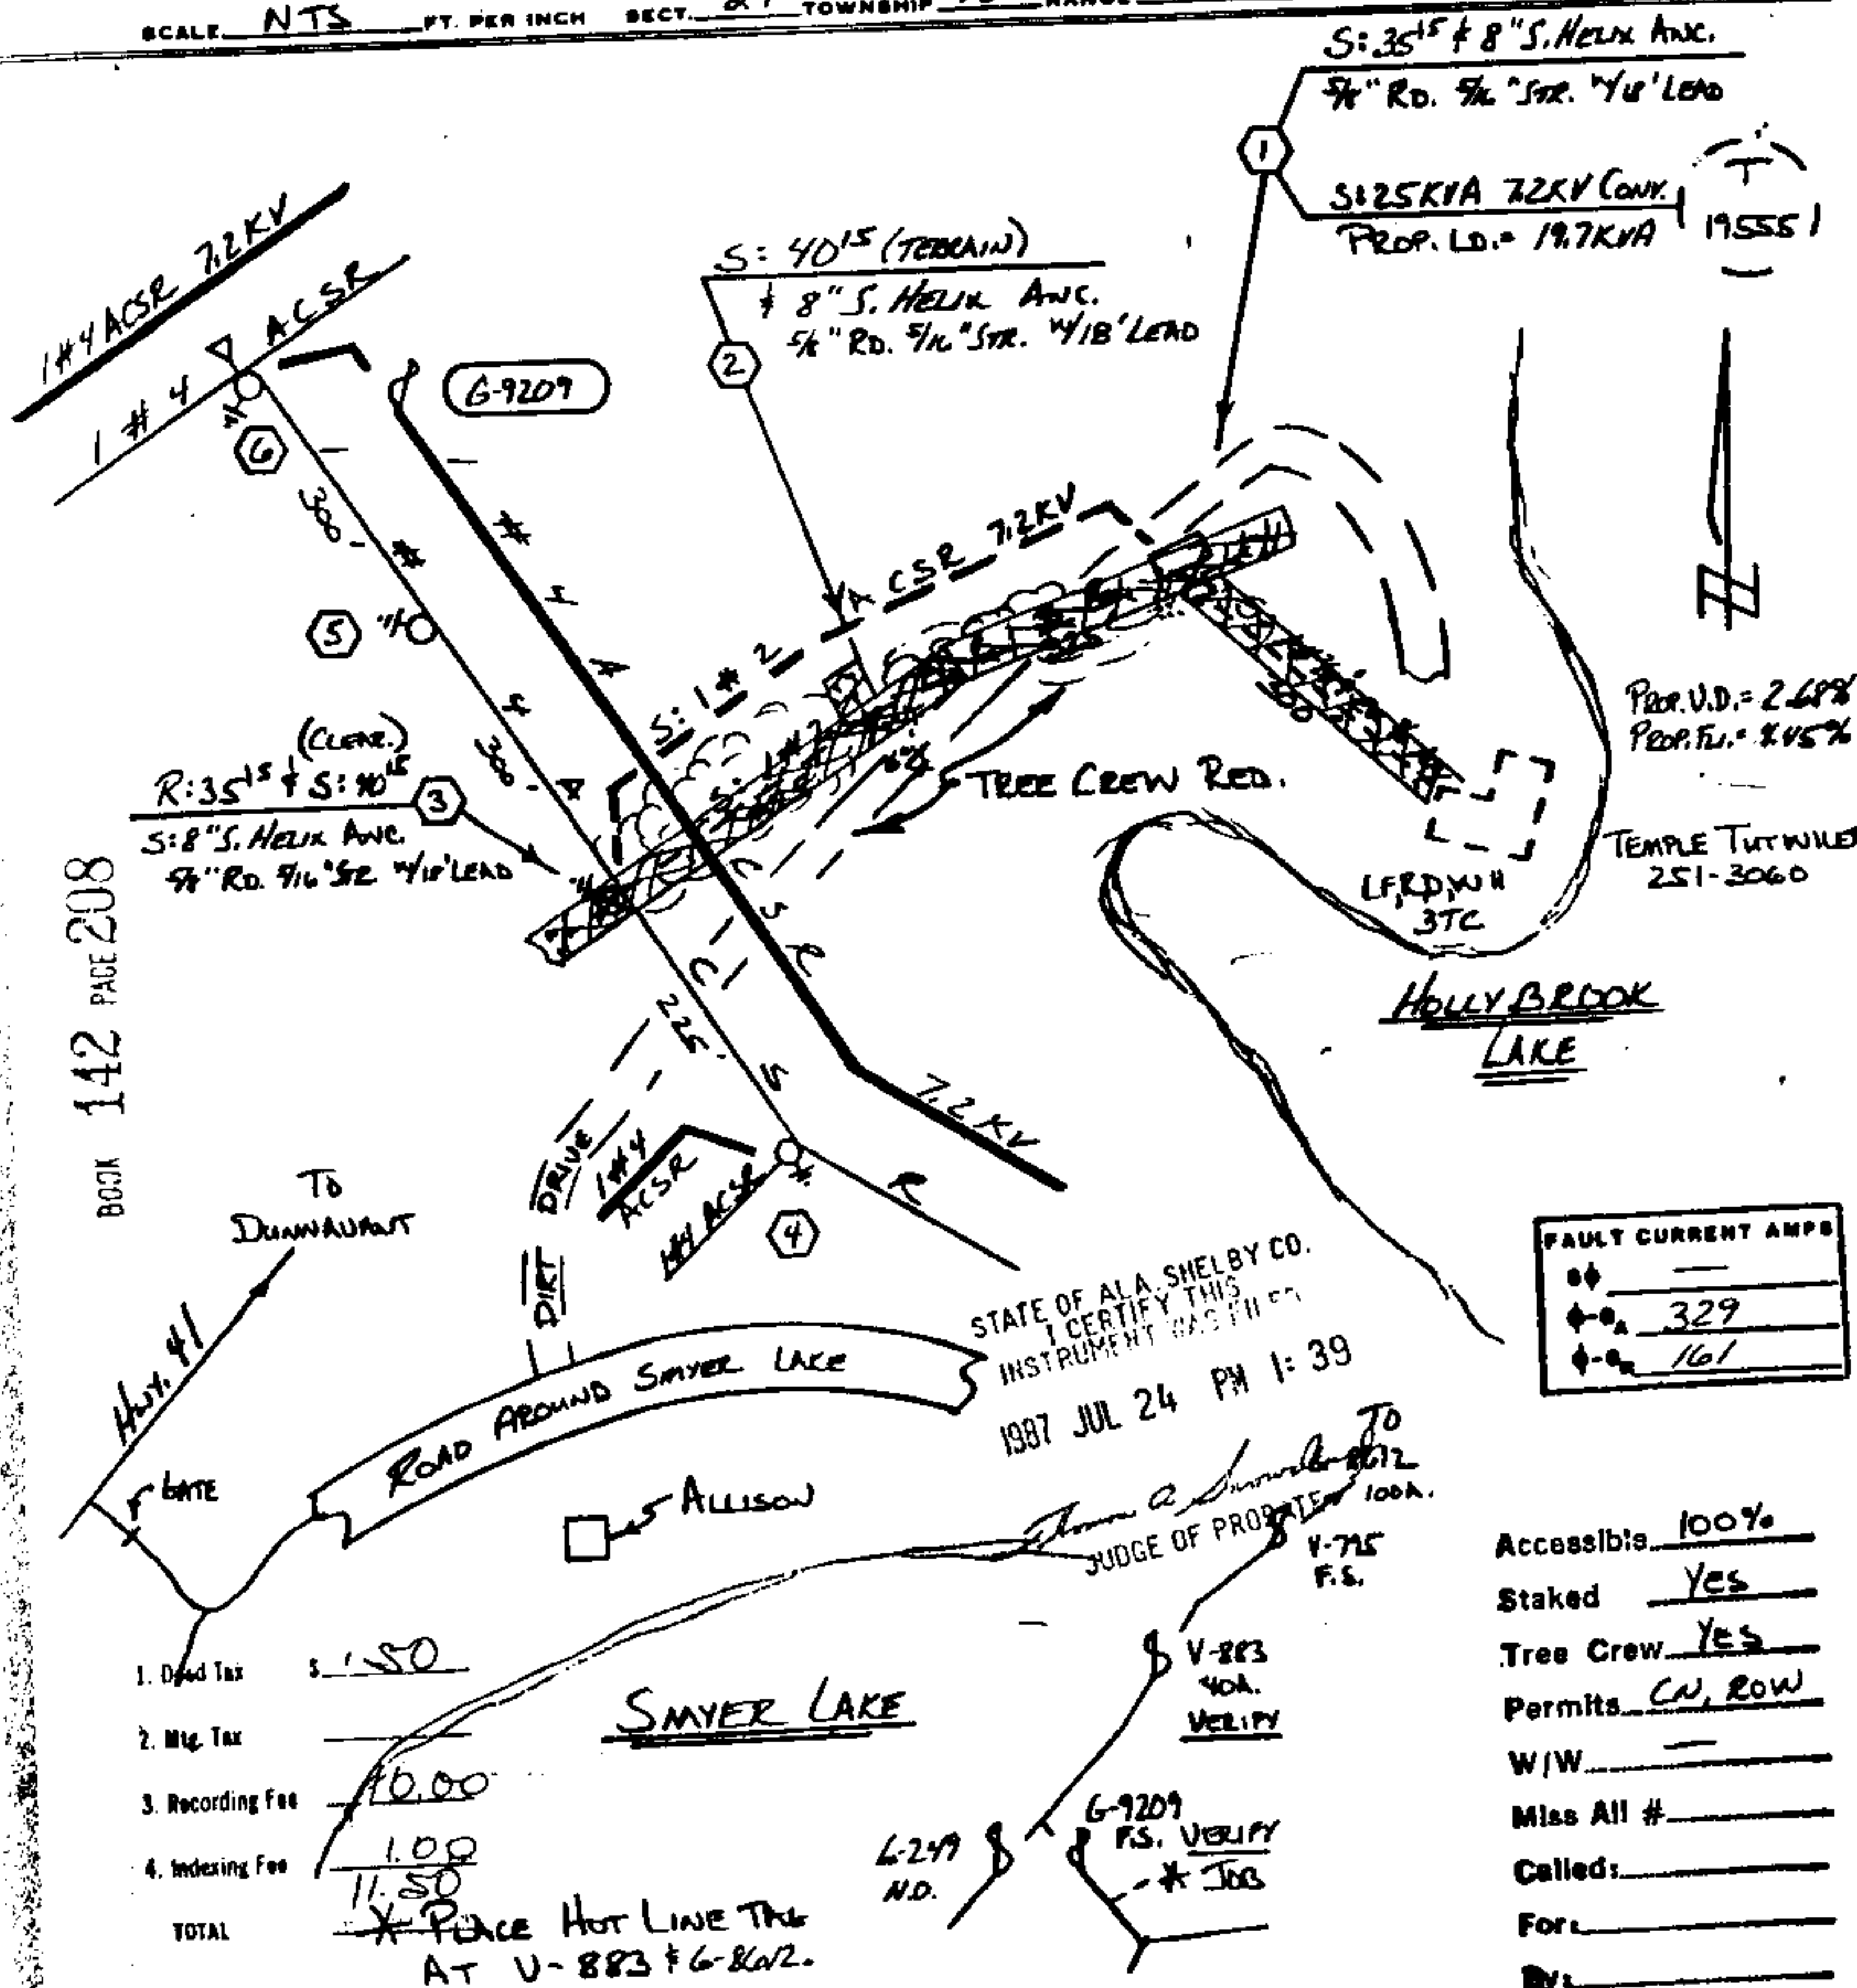 SCALE NTS FT. PER INCH SECT. TOWNSHIP
S: 35 15 & 8" S. HELIX ANC.
5/8" RD. 5/16" STR. W/18' LEAD
1
S: 25 KVA 7.2KV CONV.
PROP. LD. = 19.7 KVA
T
19.555
1#4 ACSR 7.2KV
1 #4 ACSR
S: 40 15 (TERRAIN)
& 8" S. HELIX ANC.
5/8" RD. 5/16" STR. W/18' LEAD
2
G-9209
6
300'
5
S: 1 # 2 ACSR 7.2KV
(CLEAR.)
R: 35 15 & S: 40 15
3
S: 8" S. HELIX ANC.
5/8" RD. 5/16" STR. W/18' LEAD
300'
TREE CREW REQ.
PROP. V.D. = 2.68%
TEMPLE TUTWILER
251-3060
LF, RD, WH
3TC
HOLLYBROOK
LAKE
BOOK 142 PAGE 208
225'
7.2 KV
1#4
ACSR
1#4 ACSR
4
DIRT DRIVE
TO
DUNNAVANT
HWY. 41
GATE
ROAD AROUND SMYER LAKE
ALLISON
STATE OF ALA. SHELBY CO.
I CERTIFY THIS
INSTRUMENT WAS FILED
1987 JUL 24 PM 1:39
JUDGE OF PROBATE
FAULT CURRENT AMPS
3ϕ —
329
161
TO
100A.
V-795
F.S.
V-883
40A.
VERIFY
G-9209
F.S. VERIFY
* JOB
G-249
N.O.
SMYER LAKE
1. Deed Tax $ 1.50
2. Mtg. Tax
3. Recording Fee 10.00
4. Indexing Fee 1.00
TOTAL 11.50
* PLACE HOT LINE TAG
AT V-883 &
Accessible 100%
Staked Yes
Tree Crew Yes
Permits CN, ROW
W/W —
Miss All #
Called:
For:
By: